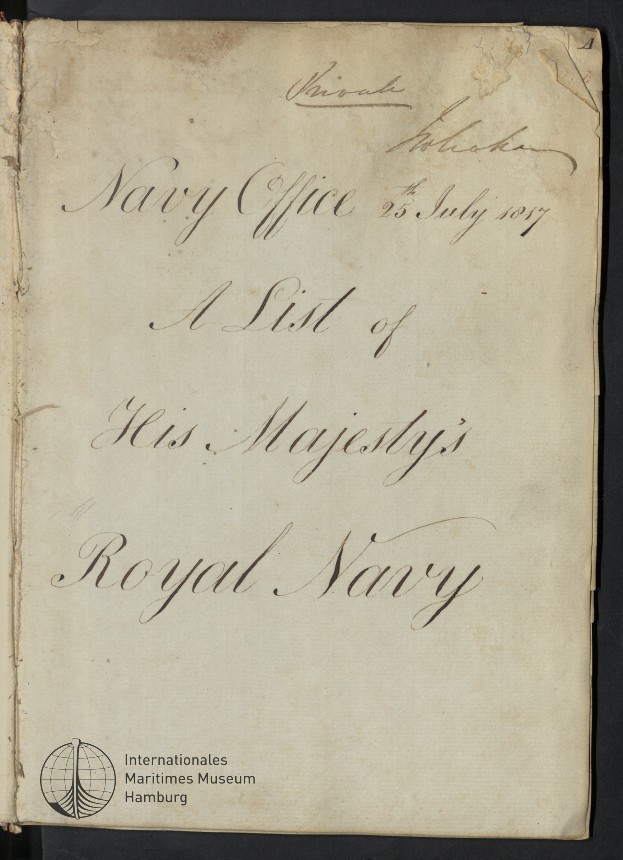 Private
Navy Office 25th July 1817
A List of
His Majesty's
Royal Navy
Internationales
Maritimes Museum
Hamburg